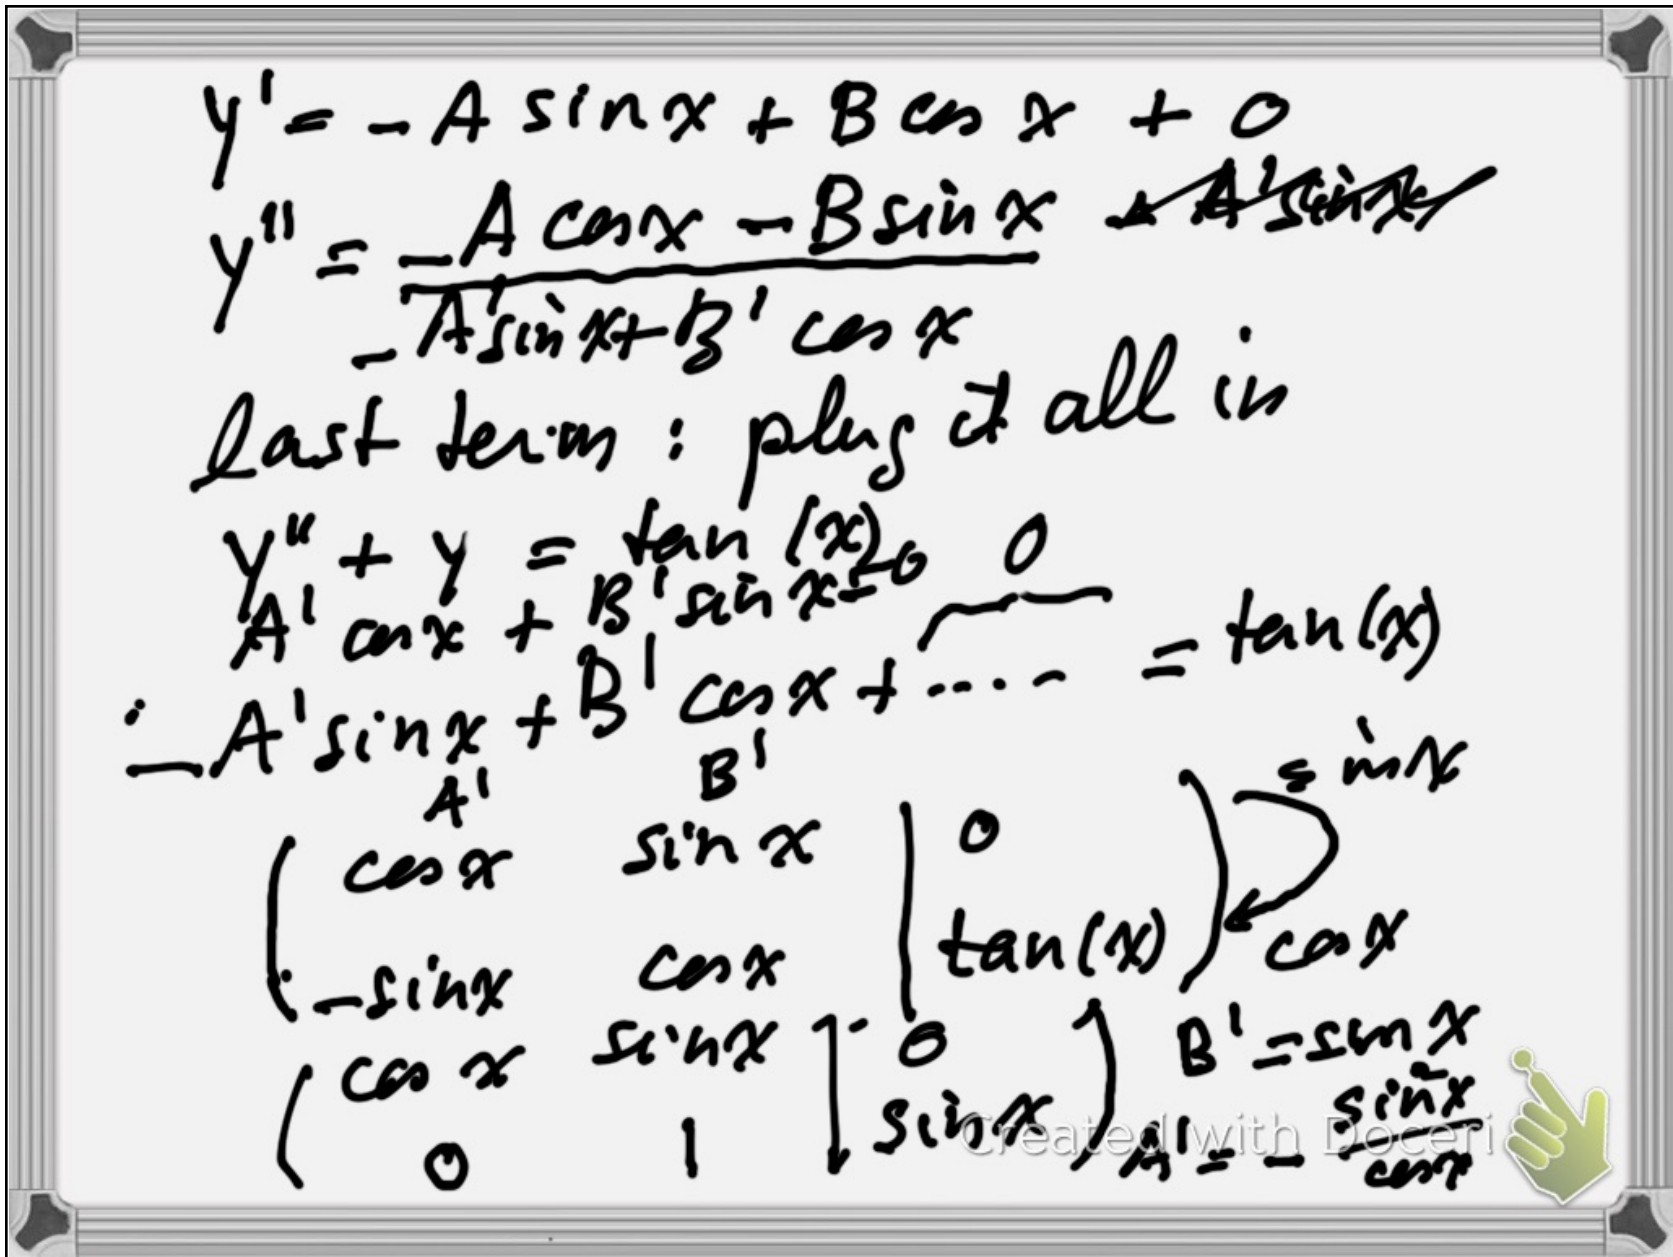 y' = -A sin x + B cos x + 0
y'' = -A cos x - B sin x + A' sin x
-A' sin x + B' cos x
last term : plug it all in
y'' + y = tan (x)
A' cos x + B' sin x = 0 0
∴ -A' sin x + B' cos x + .... = tan(x)
A' B' sin x
( cos x sin x | 0
-sin x cos x | tan(x) ) cos x
( cos x sin x | 0 ) B' = sin x
0 1 | sin x ) A' = - sin²x / cos x
Created with Doceri